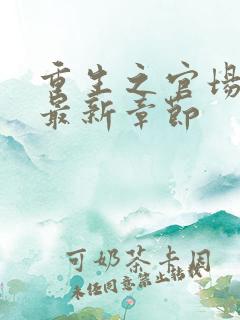 重生之官场
最新章节
可奶茶卡因
未经同意禁止转载